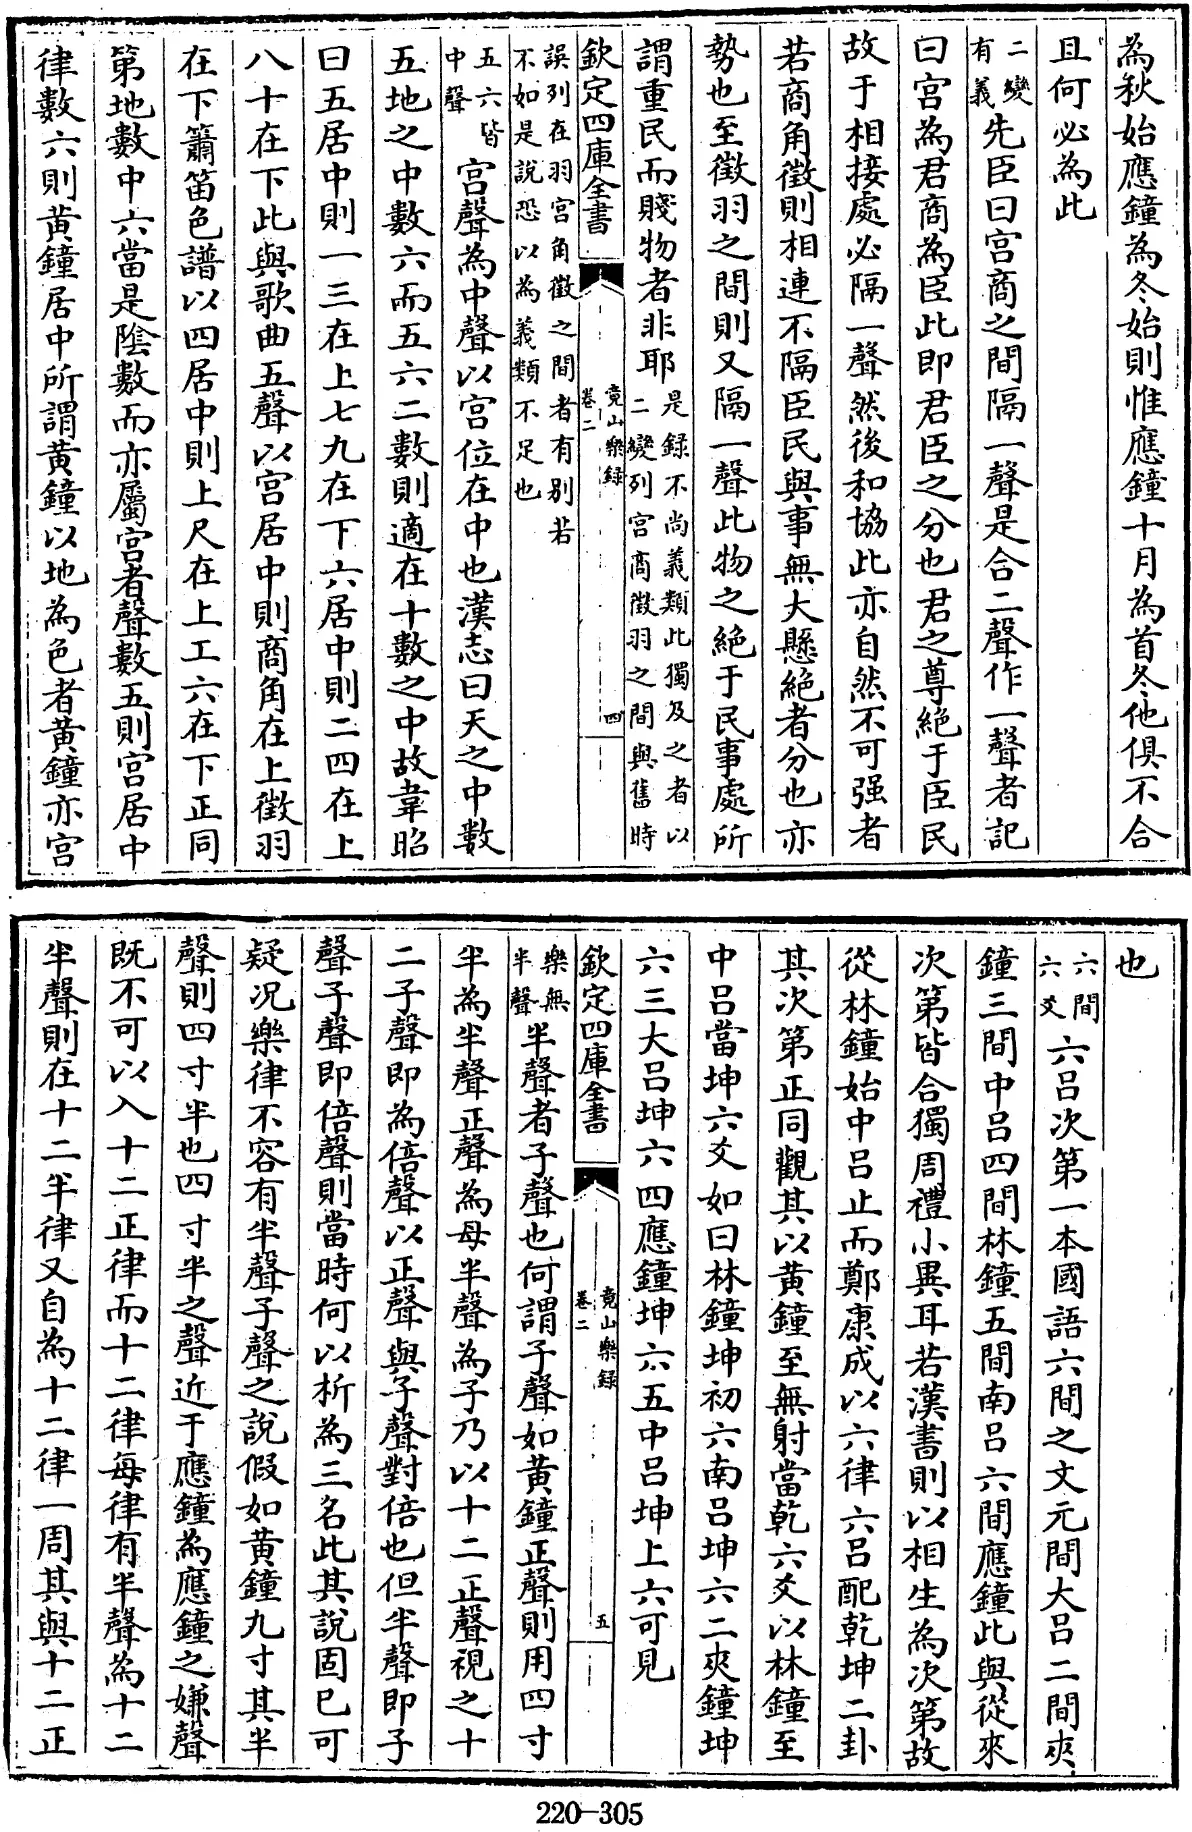 為秋始應鐘為冬始則惟應鐘十月為首冬他俱不合
且何必為此
二變
有義
先臣曰宮商之間隔一聲是合二聲作一聲者記
曰宮為君商為臣此即君臣之分也君之尊絶于臣民
故于相接處必隔一聲然後和協此亦自然不可强者
若商角徵則相連不隔臣民與事無大懸絶者分也亦
勢也至徵羽之間則又隔一聲此物之絶于民事處所
謂重民而賤物者非耶
是録不尚義類此獨及之者以
二變列宮商徵羽之間與舊時
欽定四庫全書
竟山樂録
卷二
四
誤列在羽宮角徵之間者有别若
不如是説恐以為義類不足也
五六皆
中聲
宮聲為中聲以宮位在中也漢志曰天之中數
五地之中數六而五六二數則適在十數之中故韋昭
曰五居中則一三在上七九在下六居中則二四在上
八十在下此與歌曲五聲以宮居中則商角在上徵羽
在下簫笛色譜以四居中則上尺在上工六在下正同
第地數中六當是陰數而亦屬宮者聲數五則宮居中
律數六則黄鐘居中所謂黄鐘以地為色者黄鐘亦宮
也
六間
六爻
六呂次第一本國語六間之文元間大呂二間夾
鐘三間中呂四間林鐘五間南呂六間應鐘此與從來
次第皆合獨周禮小異耳若漢書則以相生為次第故
從林鐘始中呂止而鄭康成以六律六呂配乾坤二卦
其次第正同觀其以黄鐘至無射當乾六爻以林鐘至
中呂當坤六爻如曰林鐘坤初六南呂坤六二夾鐘坤
六三大呂坤六四應鐘坤六五中呂坤上六可見
欽定四庫全書
竟山樂録
卷二
五
樂無
半聲
半聲者子聲也何謂子聲如黄鐘正聲則用四寸
半為半聲正聲為母半聲為子乃以十二正聲視之十
二子聲即為倍聲以正聲與子聲對倍也但半聲即子
聲子聲即倍聲則當時何以析為三名此其説固已可
疑况樂律不容有半聲子聲之説假如黄鐘九寸其半
聲則四寸半也四寸半之聲近于應鐘為應鐘之嫌聲
既不可以入十二正律而十二律每律有半聲為十二
半聲則在十二半律又自為十二律一周其與十二正
220-305